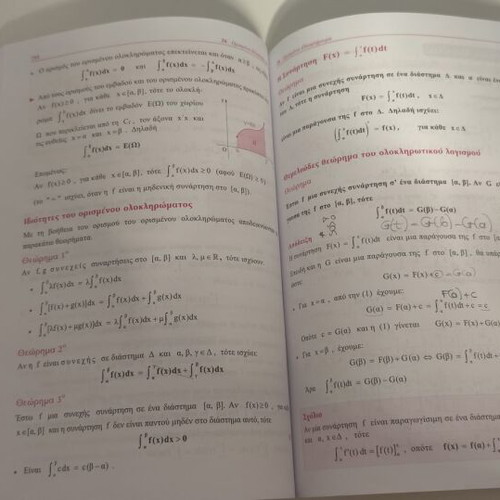 • Ο ορισμός του ορισμένου ολοκληρώματος επεκτείνεται και όταν α≥β
∫f(x)dx = 0 και ∫f(x)dx = -∫f(x)dx
Από τους ορισμούς του εμβαδού και του ορισμένου ολοκληρώματος
Αν f(x)≥0, για κάθε x∈[α, β], τότε το ολοκλή-
ρωμα ∫f(x)dx δίνει το εμβαδόν E(Ω) του χωρίου
Ω που περικλείεται από τη C_f, τον άξονα x΄x και
τις ευθείες x=α και x=β. Δηλαδή
∫f(x)dx = E(Ω)
Επομένως:
Αν f(x)≥0, για κάθε x∈[α, β], τότε ∫f(x)dx ≥ 0 (αφού E(Ω)≥
(το "=" ισχύει, όταν η f είναι η μηδενική συνάρτηση στο [α, β]).
Ιδιότητες του ορισμένου ολοκληρώματος
Με τη βοήθεια του ορισμού του ορισμένου ολοκληρώματος αποδεικνύονται
παρακάτω θεωρήματα.
Θεώρημα 1ο
Αν f, g συνεχείς συναρτήσεις στο [α, β] και λ, μ∈ℝ, τότε ισχύουν
• ∫λf(x)dx = λ∫f(x)dx
• ∫[f(x)+g(x)]dx = ∫f(x)dx + ∫g(x)dx
• ∫[λf(x)+μg(x)]dx = λ∫f(x)dx + μ∫g(x)dx
Θεώρημα 2ο
Αν η f είναι συνεχής σε διάστημα Δ και α, β, γ∈Δ, τότε ισχύει:
∫f(x)dx = ∫f(x)dx + ∫f(x)dx
Θεώρημα 3ο
Έστω f μια συνεχής συνάρτηση σε ένα διάστημα [α, β]. Αν f(x)≥0, για
x∈[α, β] και η συνάρτηση f δεν είναι παντού μηδέν στο διάστημα αυτό, τότε
∫f(x)dx > 0
• Είναι ∫cdx = c(β-α).
Η Συνάρτηση F(x) = ∫f(t)dt
Θεώρημα
Αν f είναι μια συνεχής συνάρτηση σε ένα διάστημα Δ και α είναι
του Δ, τότε η συνάρτηση
F(x) = ∫f(t)dt, x∈Δ
είναι μια παράγουσα της f στο Δ. Δηλαδή ισχύει:
(∫f(t)dt)΄ = f(x), για κάθε x∈Δ
Θεμελιώδες θεώρημα του ολοκληρωτικού λογισμού
Θεώρημα
Έστω f μια συνεχής συνάρτηση σ' ένα διάστημα [α, β]. Αν G
ουσα της f στο [α, β], τότε
∫f(t)dt = G(β)-G(α)
Απόδειξη
Η συνάρτηση F(x) = ∫f(t)dt είναι μια παράγουσα της f στο
Επειδή και η G είναι μια παράγουσα της f στο [α, β], θα
G(x) = F(x)+c
F(α)+c
• Για x=α, από την (1) έχουμε:
G(α) = F(α)+c = ∫f(t)dt+c = c
Οπότε c = G(α) και η (1) γίνεται G(x) = F(x)+G(α)
• Για x=β, έχουμε:
G(β) = F(β)+G(α) ⇔ G(β) = ∫f(t)dt
Άρα ∫f(t)dt = G(β)-G(α)
Σχόλιο
Αν μία συνάρτηση f είναι παραγωγίσιμη σε ένα διάστημα
και α, x∈Δ, τότε
∫f΄(t)dt = [f(t)], οπότε f(x) = f(α)+∫